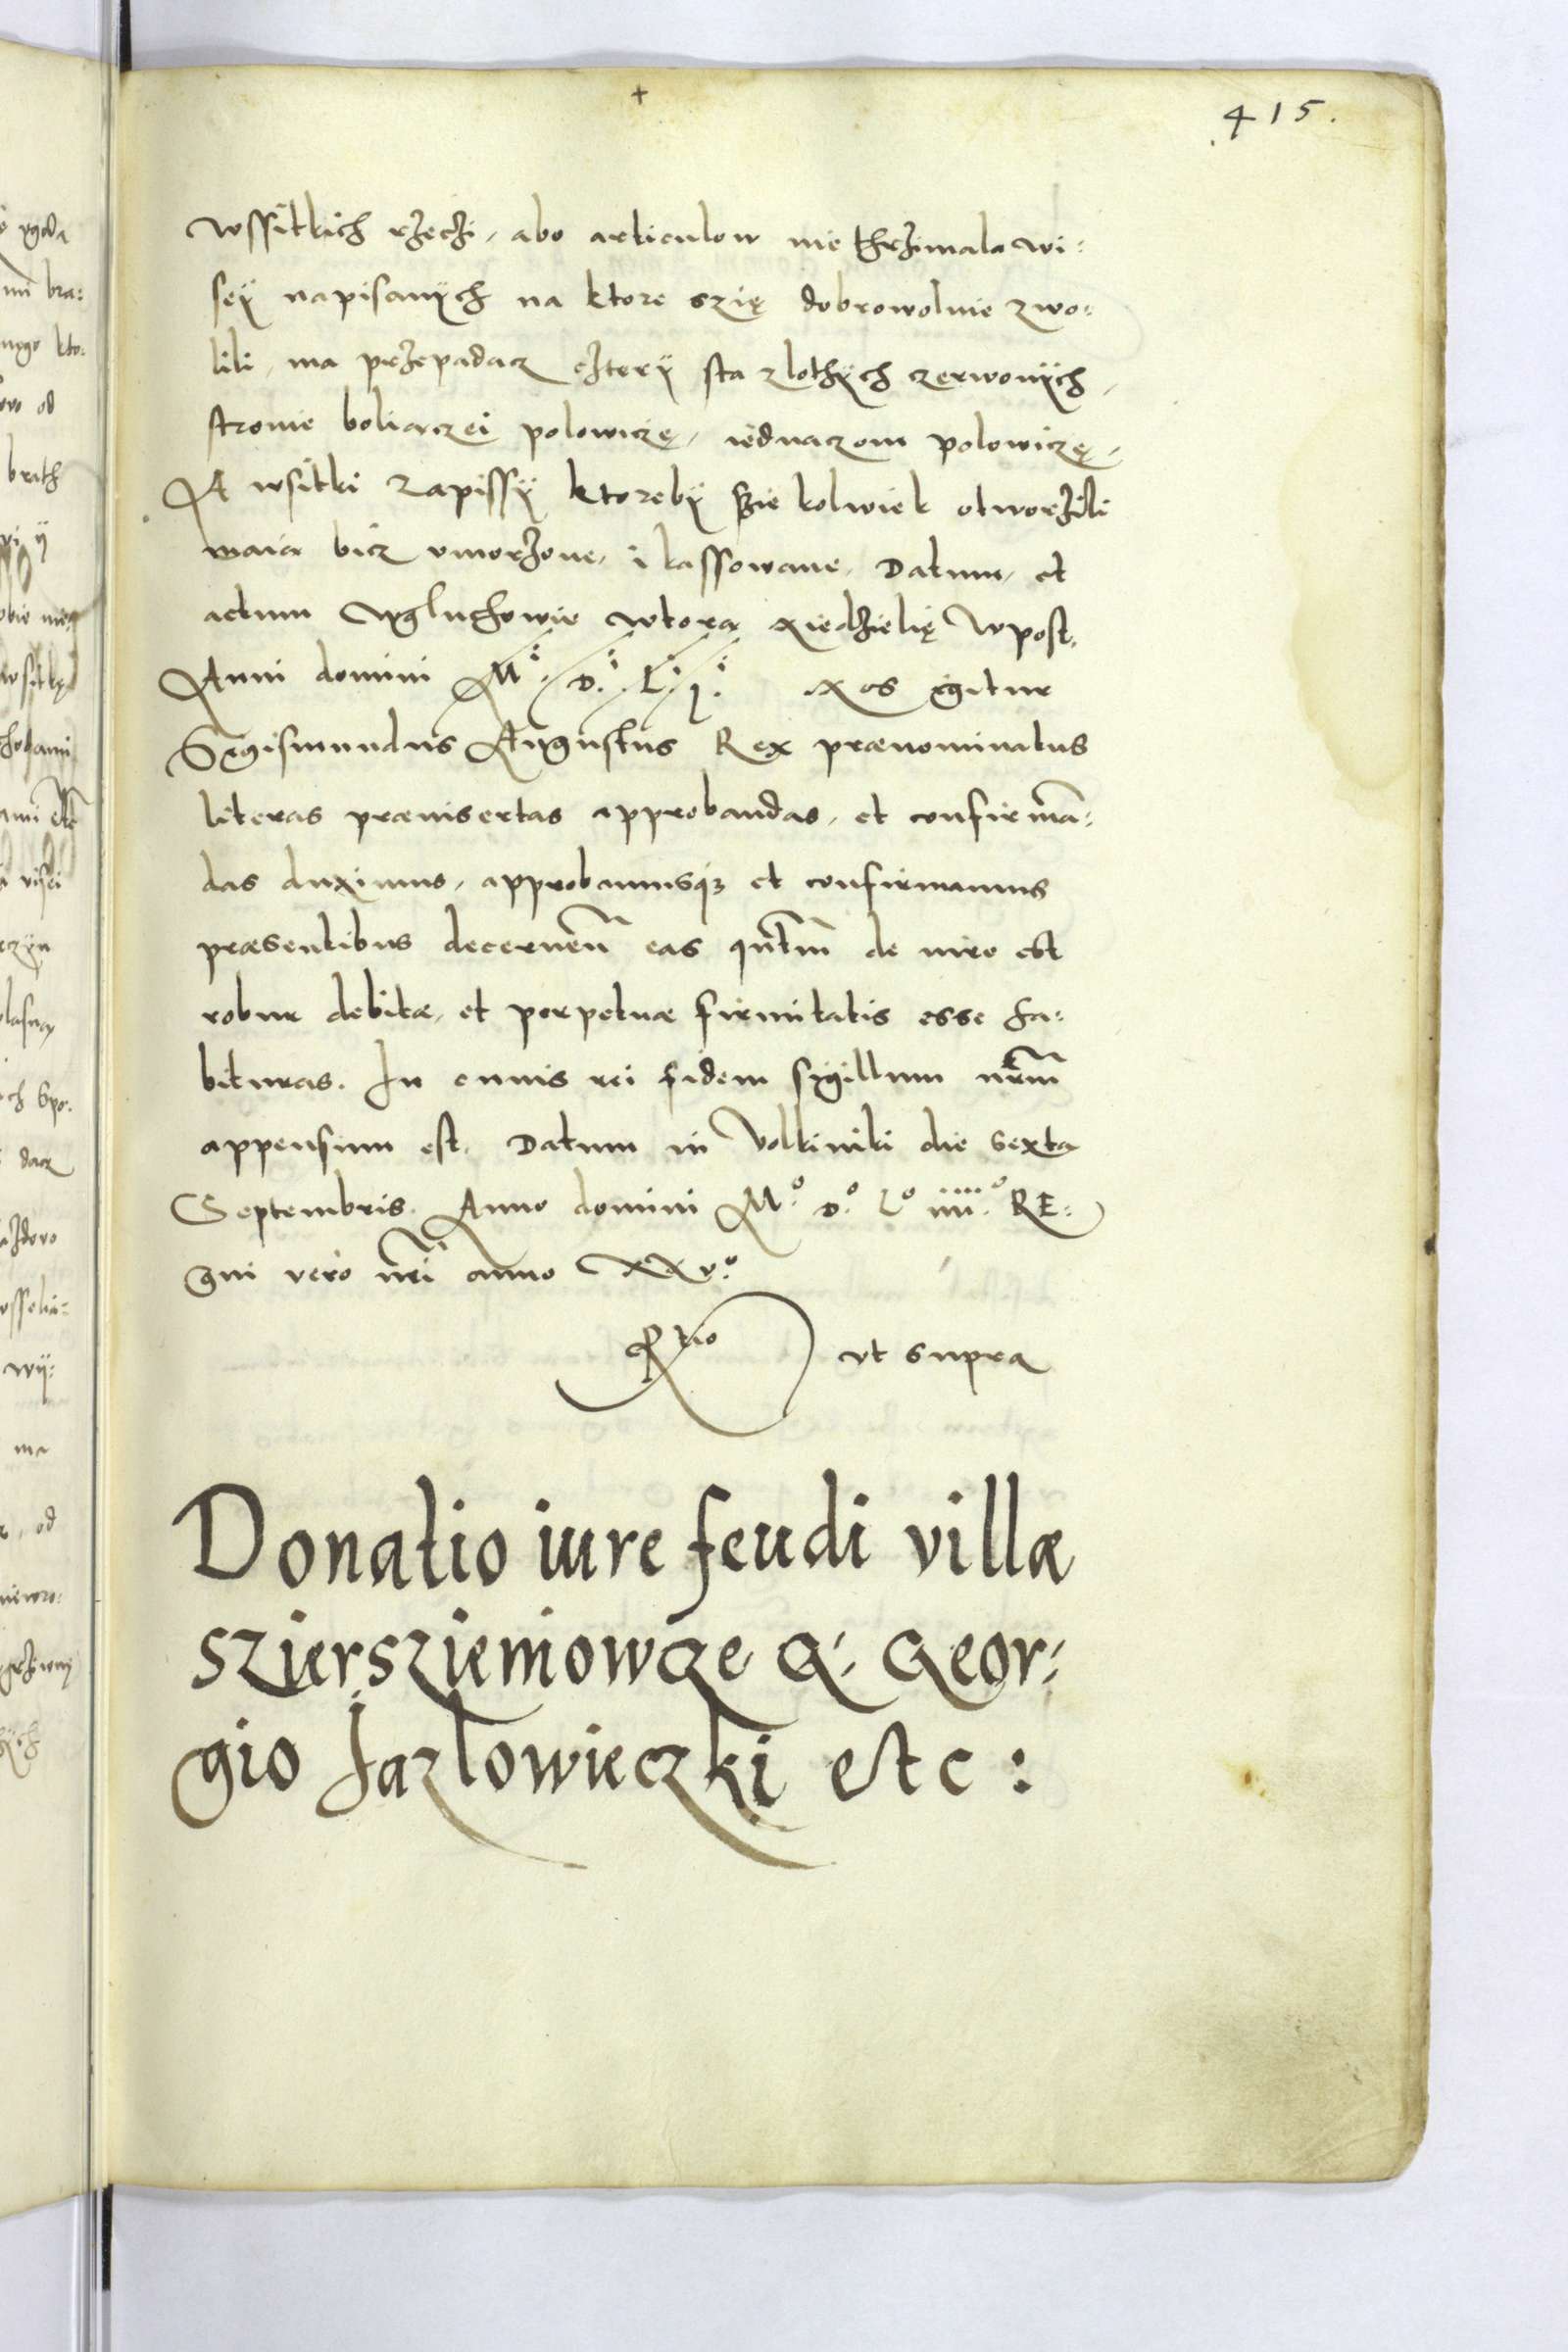 415.
wssitkich rzeczi, abo articulow nie thrzimala wi:
seÿ napisanÿch na ktore szię dobrowolnie zwo:
lili, ma przepadacz czterÿ sta zlothÿch czerwonÿch,
stronie boliaczei polowiczę, iednaczom polowiczę,
A wsitki zapissÿ ktorebÿ szie kolwiek otworzili
maia bicz vmorzone, i kassowane, Datum, et
actum wgluchowie wtora niedzielię wpost,
Anni domini M. D. L. j. Nos igitur
Sigismundus Augustus Rex prænominatus
literas præinsertas approbandas, et confirmã:
das duximus, approbamusqȝ et confirmamus
præsentibus decernen̄ eas qntm̄ de iure est
robur debitæ, et perpetuæ firmitatis esse ha:
bituras. In cuius rei fidem sigillum nrm̄
appensum est. Datum in Volkiniki die sexta
Septembris. Anno domini M.º D.º Lº iiii.º RE:
gni vero nrĩ anno XXv.º
Rtio ut supra
Donatio iure feudi villæ
szierszieniowcze G: Geor:
gio Jazlowieczki etc: